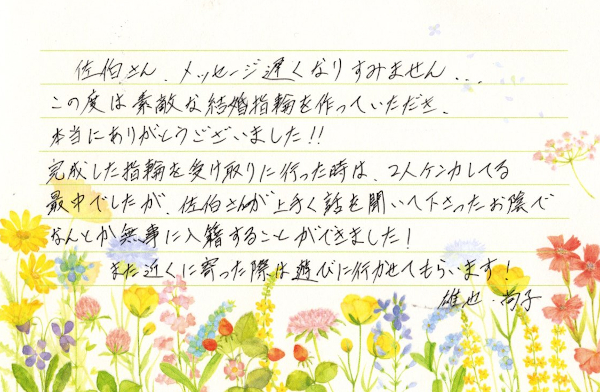 佐伯さん、メッセージ遅くなりすみません...
この度は素敵な結婚指輪を作っていただき、
本当にありがとうございました!!
完成した指輪を受け取りに行った時は、2人ケンカしてる
最中でしたが、佐伯さんが上手く話を聞いて下さったお陰で
なんとか無事に入籍することができました!
また近くに寄った際は遊びに行かせてもらいます!
雄也・尚子